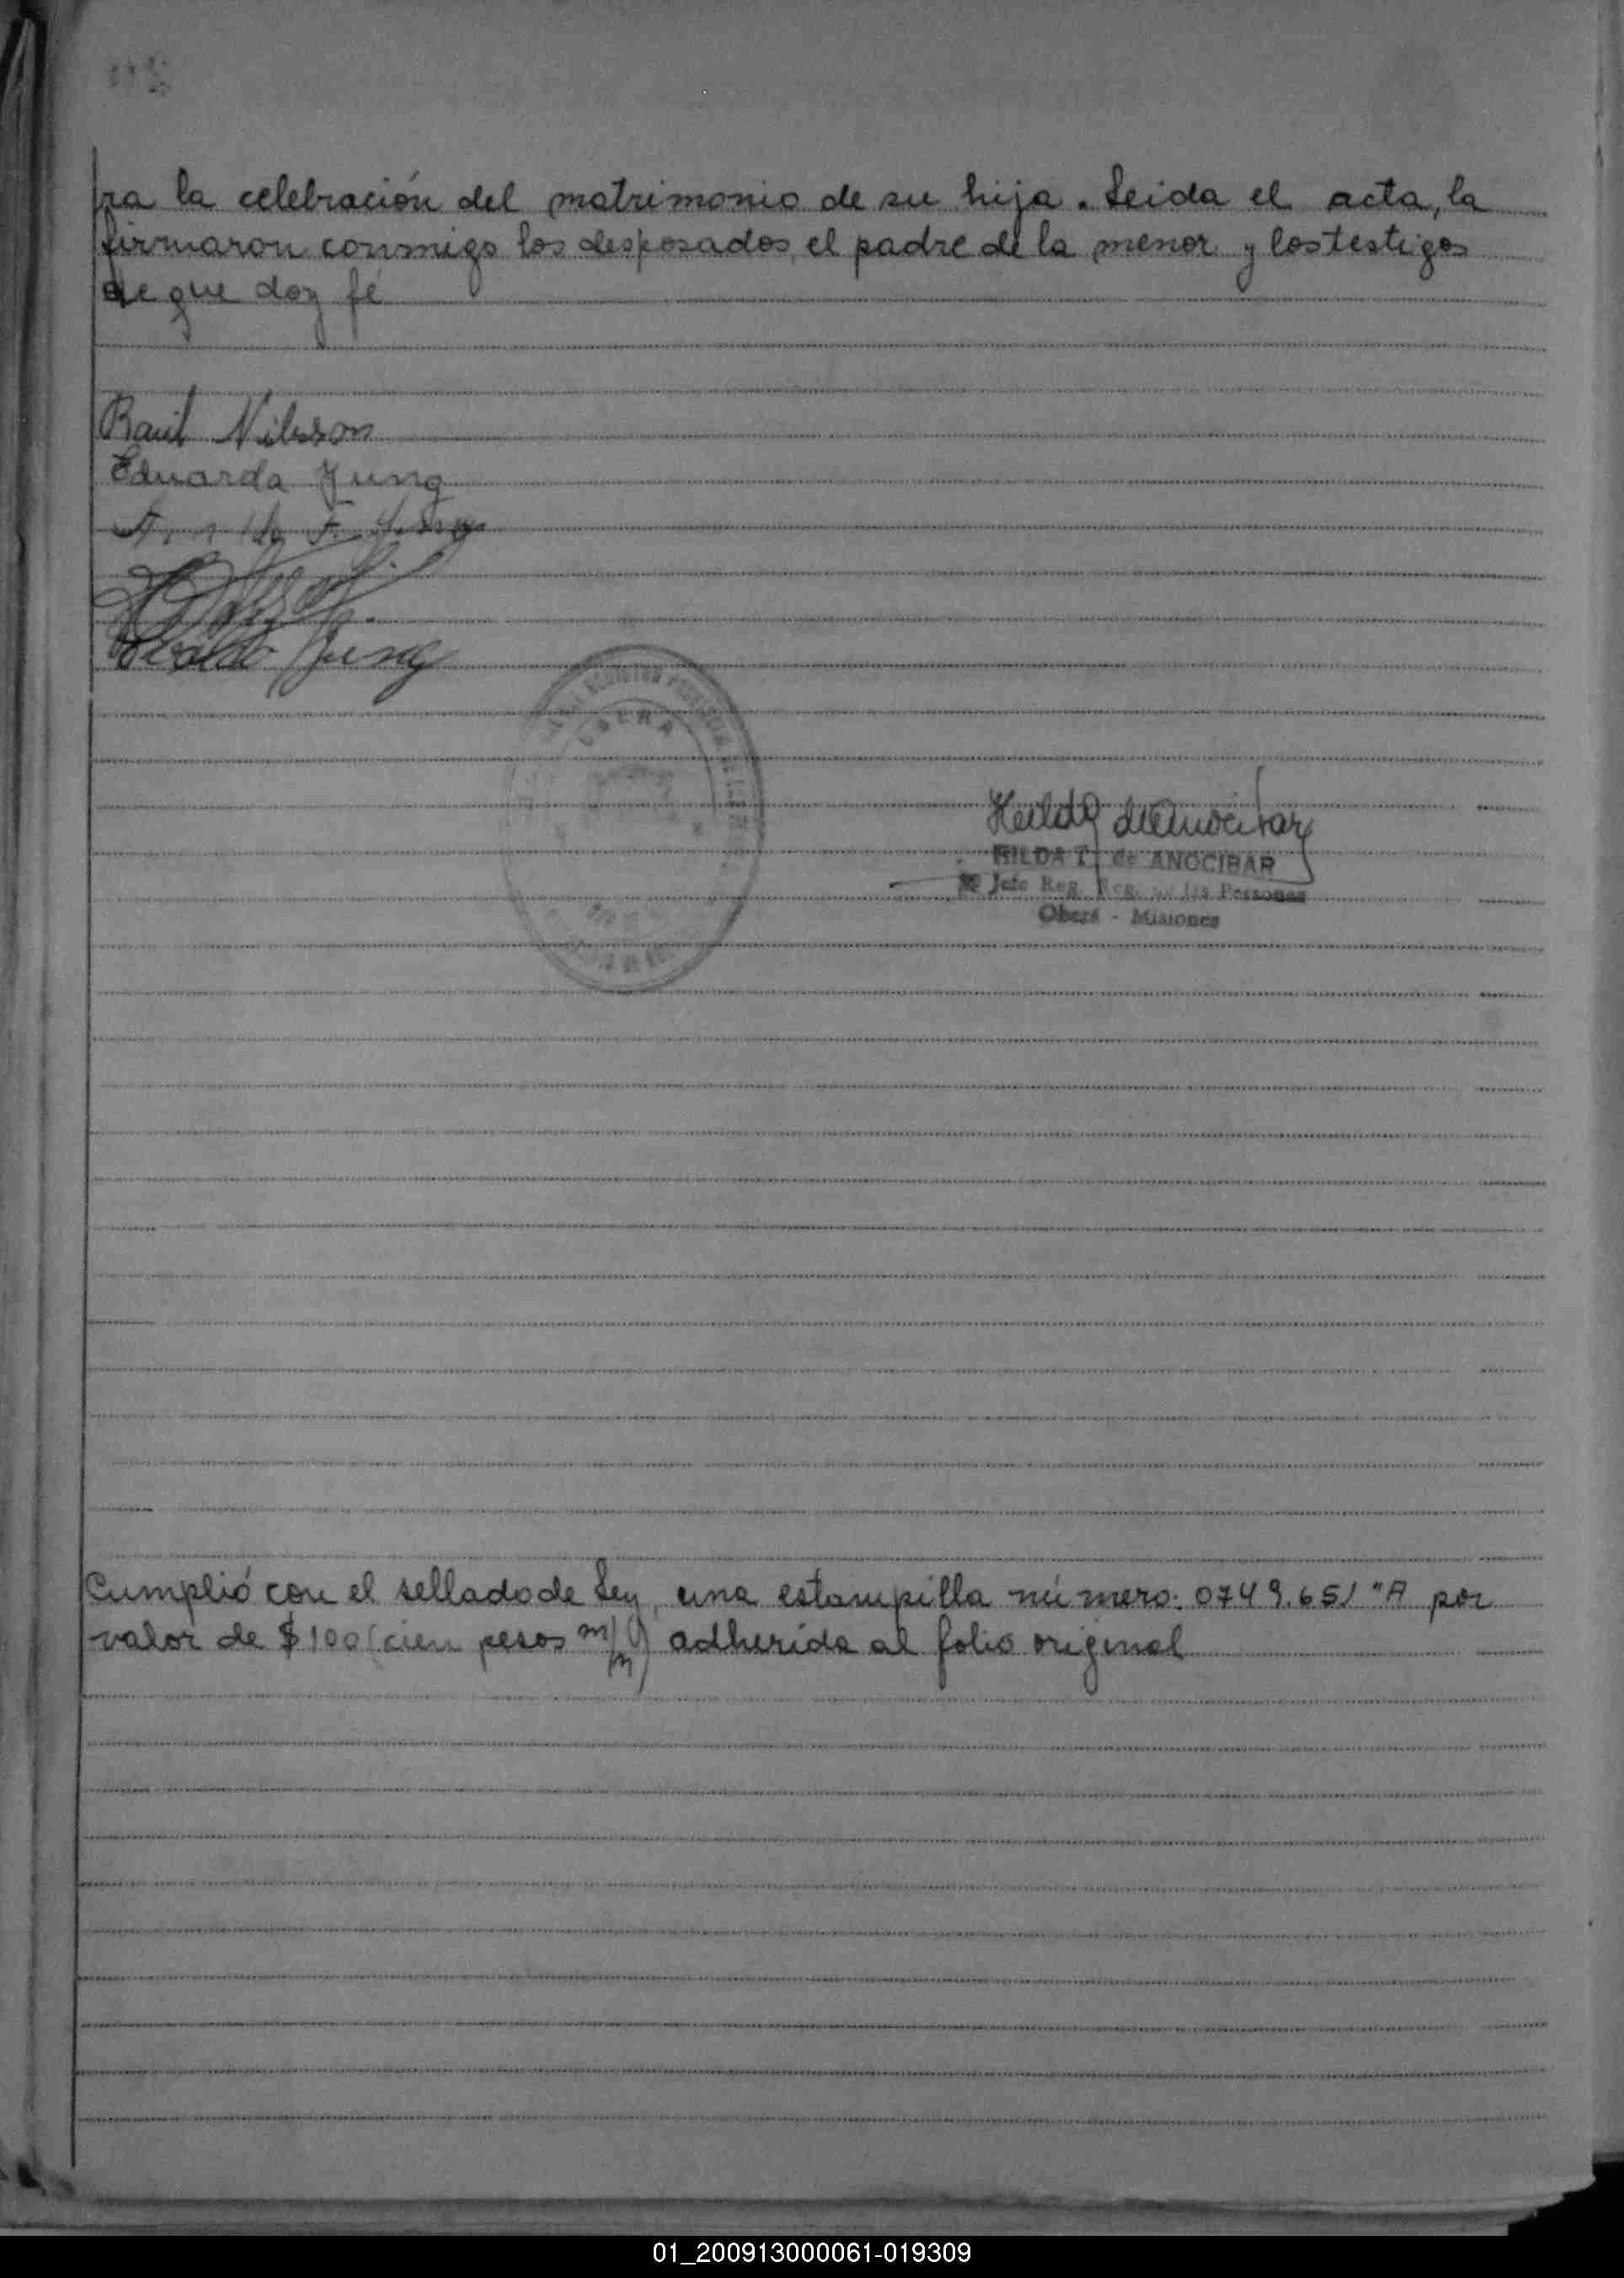 ra la celebración del matrimonio de su hija. Leida el acta, la
firmaron conmigo los desposados, el padre de la menor y los testigos
de que doy fé
Raul Nilsson
Eduarda Jung
F.
Jung
OBERA
Hilda de Anocibar
HILDA T. de ANOCIBAR
Jefe Reg. Prov. de las Personas
Oberá - Misiones
Cumplió con el sellado de Ley, una estampilla número: 0749.651 "A por
valor de $100 (cien pesos m/n) adherida al folio original
01_200913000061-019309